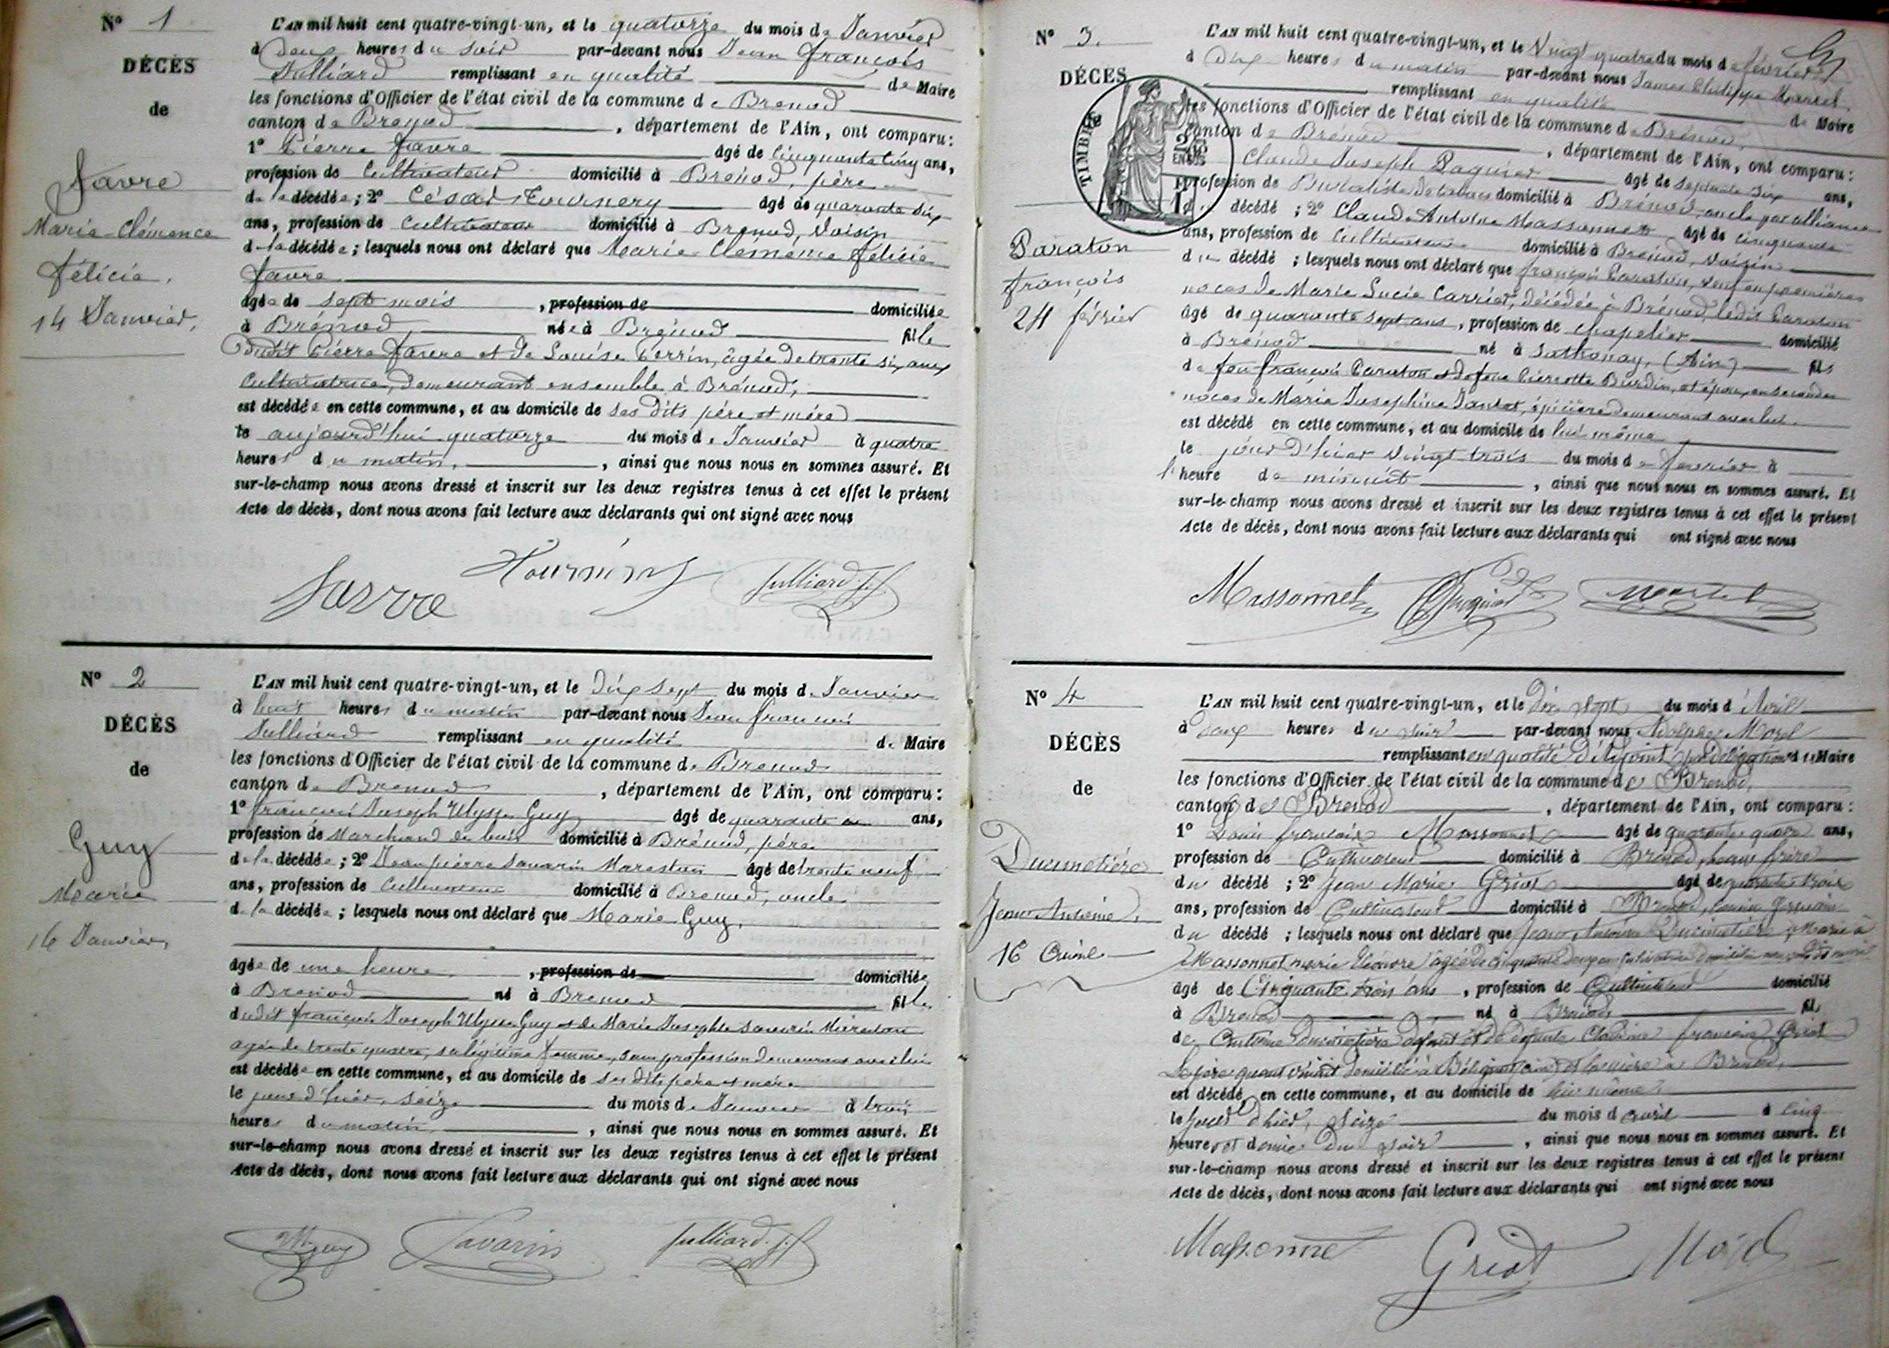 N° 1
DÉCÈS
de
Favre
Marie-Clémence
Félicie.
14 Janvier.
L'AN mil huit cent quatre-vingt-un, et le quatorze du mois de Janvier
à deux heures du soir par-devant nous Jean François
Julliard remplissant en qualité de Maire
les fonctions d'Officier de l'état civil de la commune de Brenod
canton de Brenod, département de l'Ain, ont comparu:
1° Pierre Favre âgé de cinquante cinq ans,
profession de Cultivateur domicilié à Brénod, père
de la décédée; 2° César Tournery âgé de quarante six
ans, profession de Cultivateur domicilié à Brenod, Voisin
de la décédée; lesquels nous ont déclaré que Marie Clémence Félicie
Favre
âgée de sept mois, profession de domiciliée
à Brénod, née à Brénod fille
dudit Pierre Favre et de Louise Perrin, âgée de trente six ans
Cultivatrice, demeurant ensemble à Brénod,
est décédée en cette commune, et au domicile de ses dits père et mère
le aujourd'hui quatorze du mois de Janvier à quatre
heures du matin, ainsi que nous nous en sommes assuré. Et
sur-le-champ nous avons dressé et inscrit sur les deux registres tenus à cet effet le présent
Acte de décès, dont nous avons fait lecture aux déclarants qui ont signé avec nous
Julliard J.f.
N° 2
DÉCÈS
de
Guy
Marie
16 Janvier,
L'AN mil huit cent quatre-vingt-un, et le dix sept du mois de Janvier
à huit heures du matin par-devant nous Jean françois
Julliard remplissant en qualité de Maire
les fonctions d'Officier de l'état civil de la commune de Brenod
canton de Brenod, département de l'Ain, ont comparu:
1° françois Joseph Ulysse Guy âgé de quarante ans,
profession de Marchand de bois domicilié à Brénod, père
de la décédée; 2° Jean pierre Savarin Marestan âgé de trente neuf
ans, profession de Cultivateur domicilié à Brenod, oncle
de la décédée; lesquels nous ont déclaré que Marie Guy,
âgée de une heure, profession de domiciliée
à Brenod né à Brenod fille
dudit françois Joseph Ulysse Guy et de Marie Josephte Savarin Marestan
agée de trente quatre, sa légitime femme, sans profession demeurant avec lui
est décédée en cette commune, et au domicile de ses dits père et mère
le jour d'hier, seize du mois de Janvier à trois
heures du matin, ainsi que nous nous en sommes assuré. Et
sur-le-champ nous avons dressé et inscrit sur les deux registres tenus à cet effet le présent
Acte de décès, dont nous avons fait lecture aux déclarants qui ont signé avec nous
Guy Savarin Julliard J.f.
N° 3.
DÉCÈS
TIMBRE
Paraton
françois
24 février
L'AN mil huit cent quatre-vingt-un, et le Vingt quatre du mois de février
à dix heures du matin par-devant nous James Philippe Martel
remplissant en qualité de Maire
les fonctions d'Officier de l'état civil de la commune de Brénod,
canton de Brénod, département de l'Ain, ont comparu:
Claude Joseph Paquier âgé de septante six ans,
profession de Buraliste de tabacs domicilié à Brénod, oncle par alliance
du décédé; 2° Claude Antoine Massonnet âgé de cinquante
ans, profession de Cultivateur domicilié à Brénod, voisin
du décédé; lesquels nous ont déclaré que françois Paraton, veuf en premières
noces de Marie Lucie Carrier, décédée à Brénod, ledit Paraton
âgé de quarante sept ans, profession de chapelier domicilié
à Brénod né à Sathonay, (Ain) fils
de feu françois Paraton et de feue Pierrette Burdin, et époux en secondes
noces de Marie Josephine Jantet, épicière demeurant avec lui.
est décédé en cette commune, et au domicile de lui même
le jour d'hier vingt trois du mois de février à
l'heure de minuit, ainsi que nous nous en sommes assuré. Et
sur-le-champ nous avons dressé et inscrit sur les deux registres tenus à cet effet le présent
Acte de décès, dont nous avons fait lecture aux déclarants qui ont signé avec nous
Massonnet Martel
N° 4
DÉCÈS
de
Dumetière
Jean Antoine.
16 Avril
L'AN mil huit cent quatre-vingt-un, et le Dix sept du mois d'Avril
à heures du soir par-devant nous Morel
remplissant en qualité d'Adjoint par délégation de Maire
les fonctions d'Officier de l'état civil de la commune de Brenod,
canton de Brenod, département de l'Ain, ont comparu:
1° Louis françois Massonnet âgé de quarante quatre ans,
profession de Cultivateur domicilié à Brénod, beau frère
du décédé; 2° Jean Marie Griot âgé de quarante trois
ans, profession de Cultivateur domicilié à Brenod, cousin germain
du décédé; lesquels nous ont déclaré que Jean Antoine Dumetière, Marié à
Massonnet marie
âgé de Cinquante trois ans, profession de Cultivateur domicilié
à Brenod né à Brénod fils
de Antoine Dumetière et de défunte Claudine françoise Griot
est décédé en cette commune, et au domicile de lui même
le jour d'hier, seize du mois d'avril à cinq
heures et demie du soir, ainsi que nous nous en sommes assuré. Et
sur-le-champ nous avons dressé et inscrit sur les deux registres tenus à cet effet le présent
Acte de décès, dont nous avons fait lecture aux déclarants qui ont signé avec nous
Massonnet Griot Morel